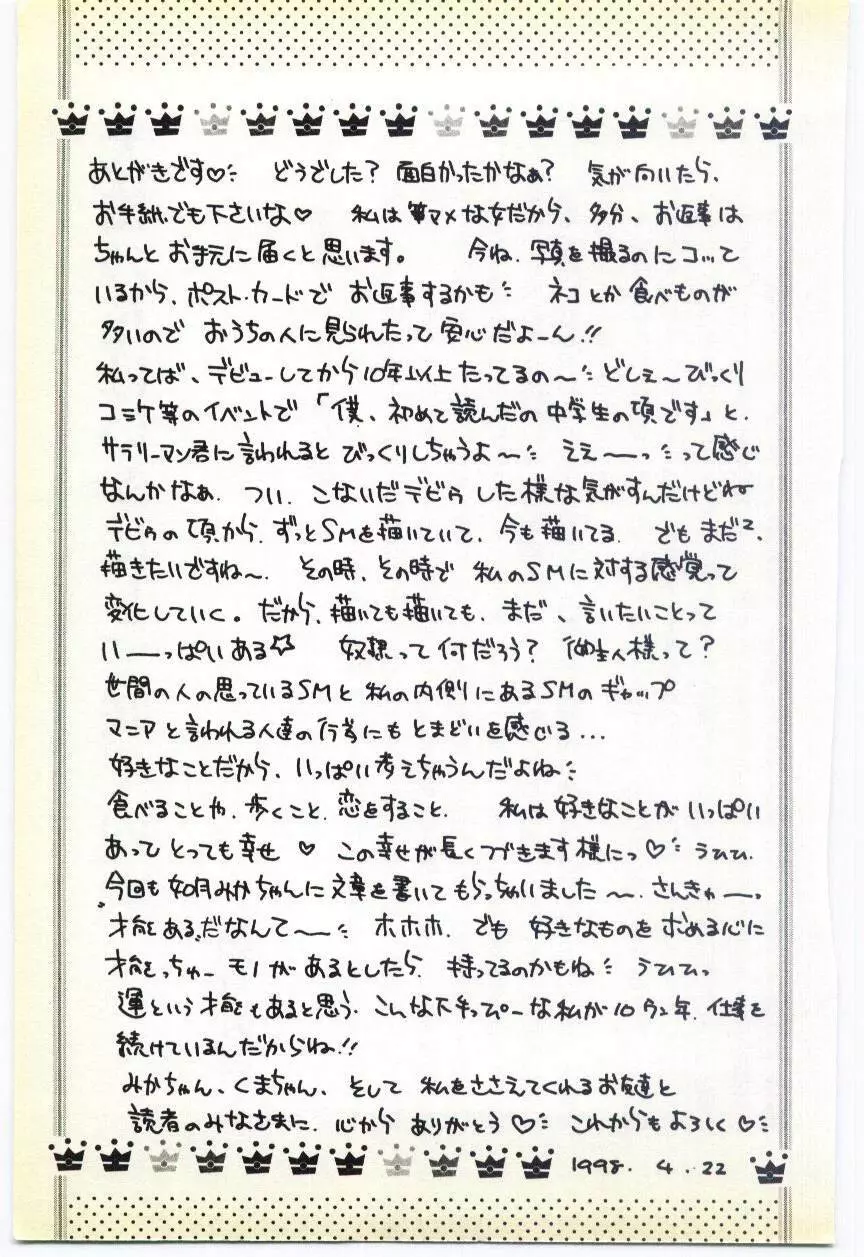 あとがきです♡ どうでした？面白かったかなぁ？ 気が向いたら、
お手紙でも下さいな♡ 私は筆マメな女だから、多分、お返事は
ちゃんとお手元に届くと思います。 今ね、写真を撮るのにコッて
いるから、ポスト・カードでお返事するかも ネコとか食べものが
多いので おうちの人に見られたって安心だよーん!!
私ってば、デビューしてから10年以上たってるの〜 どしぇ〜びっくり
コミケ等のイベントで「僕、初めて読んだの中学生の頃です」と、
サラリーマン君に言われると びっくりしちゃうよ〜 ええーっって感じ
なんかなぁ、つい、こないだデビゥした様な気がすんだけどねー
デビゥの頃から、ずっとSMを描いていて、今も描いてる。でもまだ2、
描きたいですね〜。その時、その時で 私のSMに対する感覚って
変化していく。だから、描いても描いても、まだ、言いたいことって
いーーっぱいある☆ 奴隷って何だろう？ 御主人様って？
世間の人の思っているSMと私の内側にあるSMのギャップ
マニアと言われる人達の行為にもとまどいを感じる...
好きなことだから、いっぱい考えちゃうんだよね
食べることや、歩くこと、恋をすること、 私は好きなことがいっぱい
あって とっても幸せ ♡ この幸せが長くつづきます様にっ♡ うひひ、
今回も如月みかちゃんに文章を書いてもらっちゃいました〜、さんきゅーっ
"才能ある"だなんて〜 ホホホ、でも 好きなものを求める心に
才能っちゅーモノがあるとしたら、持ってるのかもね うひひっ
運という才能もあると思う、こんな下手っぴーな私が10ウン年、仕事を
続けているんだからね!!
みかちゃん、くまちゃん、そして 私をささえてくれるお友達と
読者のみなさまに、心から ありがとう♡ これからもよろしく♡
1998. 4. 22